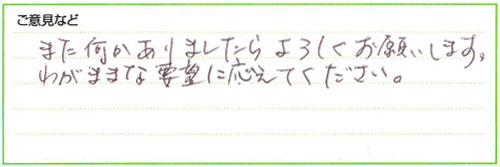 ご意見など
また何かありましたらよろしくお願いします。
わがままな要望に応えてください。